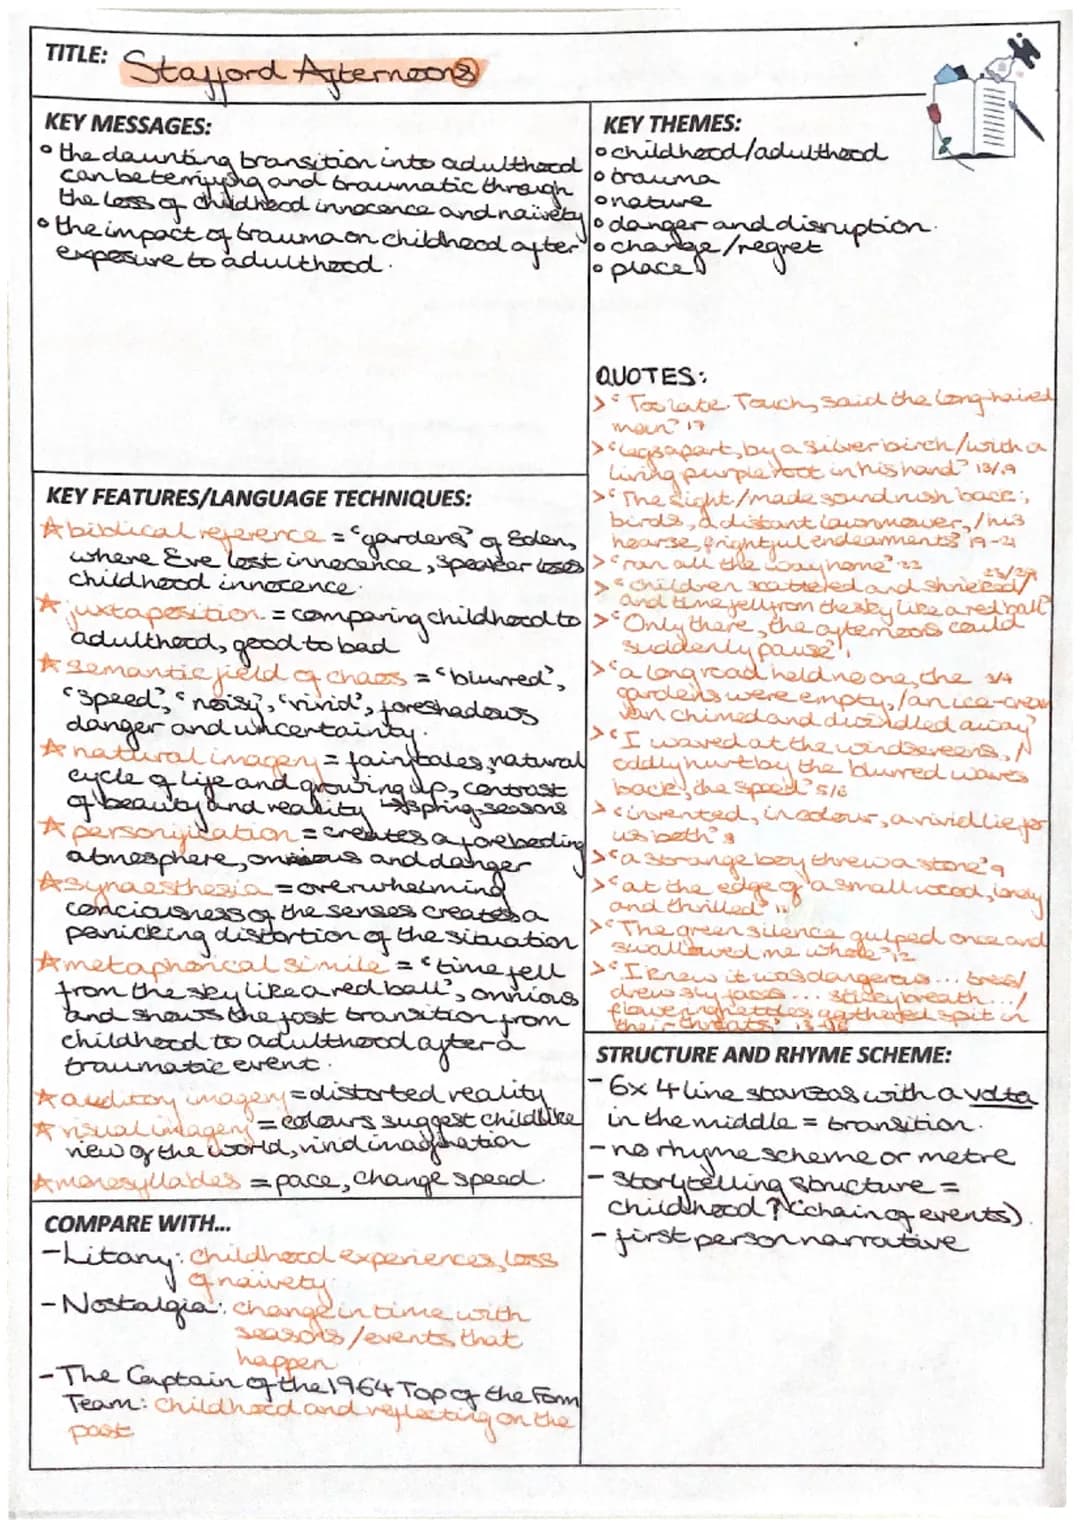 TITLE: Stafford Afternoons
KEY MESSAGES:
• the daunting transition into adulthood
can be terrifying and traumatic through
the loss of childhood innocence and naivety
• the impact of trauma on childhood after
exposure to adulthood.
KEY THEMES:
• childhood/adulthood
• trauma
• nature
• danger and disruption.
• change/regret
• place
QUOTES:
> 'Too late. Touch, said the long-haired
man' 17
> 'legs apart, by a silver birch/with a
living purple root in his hand' 18/19
> 'The sight/made sound rush back;
birds, a distant lawnmower,/his
hoarse, frightful endearments' 19-21
> 'ran all the way home' 22
> 'children scattered and shrieked/ 23/24
and time fell from the sky like a red ball'
> 'Only there, the afternoons could
suddenly pause' 1
> 'a long road held no one, the 3/4
gardens were empty,/an ice-cream
van chimed and dwindled away'
> 'I waved at the windscreens,/
oddly hurt by the blurred waves
back, the speed' 5/6
> 'invented, in colour, a vivid lie for
us both' 8
> 'a strange boy threw a stone' 9
> 'at the edge of a small wood, lonely
and thrilled' 11
> 'The green silence gulped once and
swallowed me whole' 12
> 'I knew it was dangerous... trees/
drew sly faces... sticky breath.../
flower nettles gathered spit in
their throats' 13-16
KEY FEATURES/LANGUAGE TECHNIQUES:
☆ biblical reference = 'gardens' of Eden,
where Eve lost innocence, speaker loses
childhood innocence.
☆ juxtaposition = comparing childhood to
adulthood, good to bad
☆ semantic field of chaos = 'blurred',
'speed', 'noisy', 'vivid', foreshadows
danger and uncertainty.
☆ natural imagery = fairytales, natural
cycle of life and growing up, contrast
of beauty and reality ↳spring-seasons
☆ personification = creates a foreboding
atmosphere, ominous and danger
☆ synaesthesia = overwhelming
conciousness of the senses creates a
panicking distortion of the situation
☆ metaphorical simile = 'time fell
from the sky like a red ball', omnious
and shows the fast transition from
childhood to adulthood after a
traumatic event.
☆ auditory imagery = distorted reality
☆ visual imagery = colours suggest childlike
view of the world, vivid imagination
☆ monosyllables = pace, change speed.
STRUCTURE AND RHYME SCHEME:
- 6x 4 line stanzas with a volta
in the middle = transition.
- no rhyme scheme or metre
- storytelling structure =
childhood? (chain of events).
- first person narrative
COMPARE WITH...
- Litany: childhood experiences, loss
of naivety
- Nostalgia: change in time with
seasons/events that
happen
- The Captain of the 1964 Top of the Form
Team: childhood and reflecting on the
past